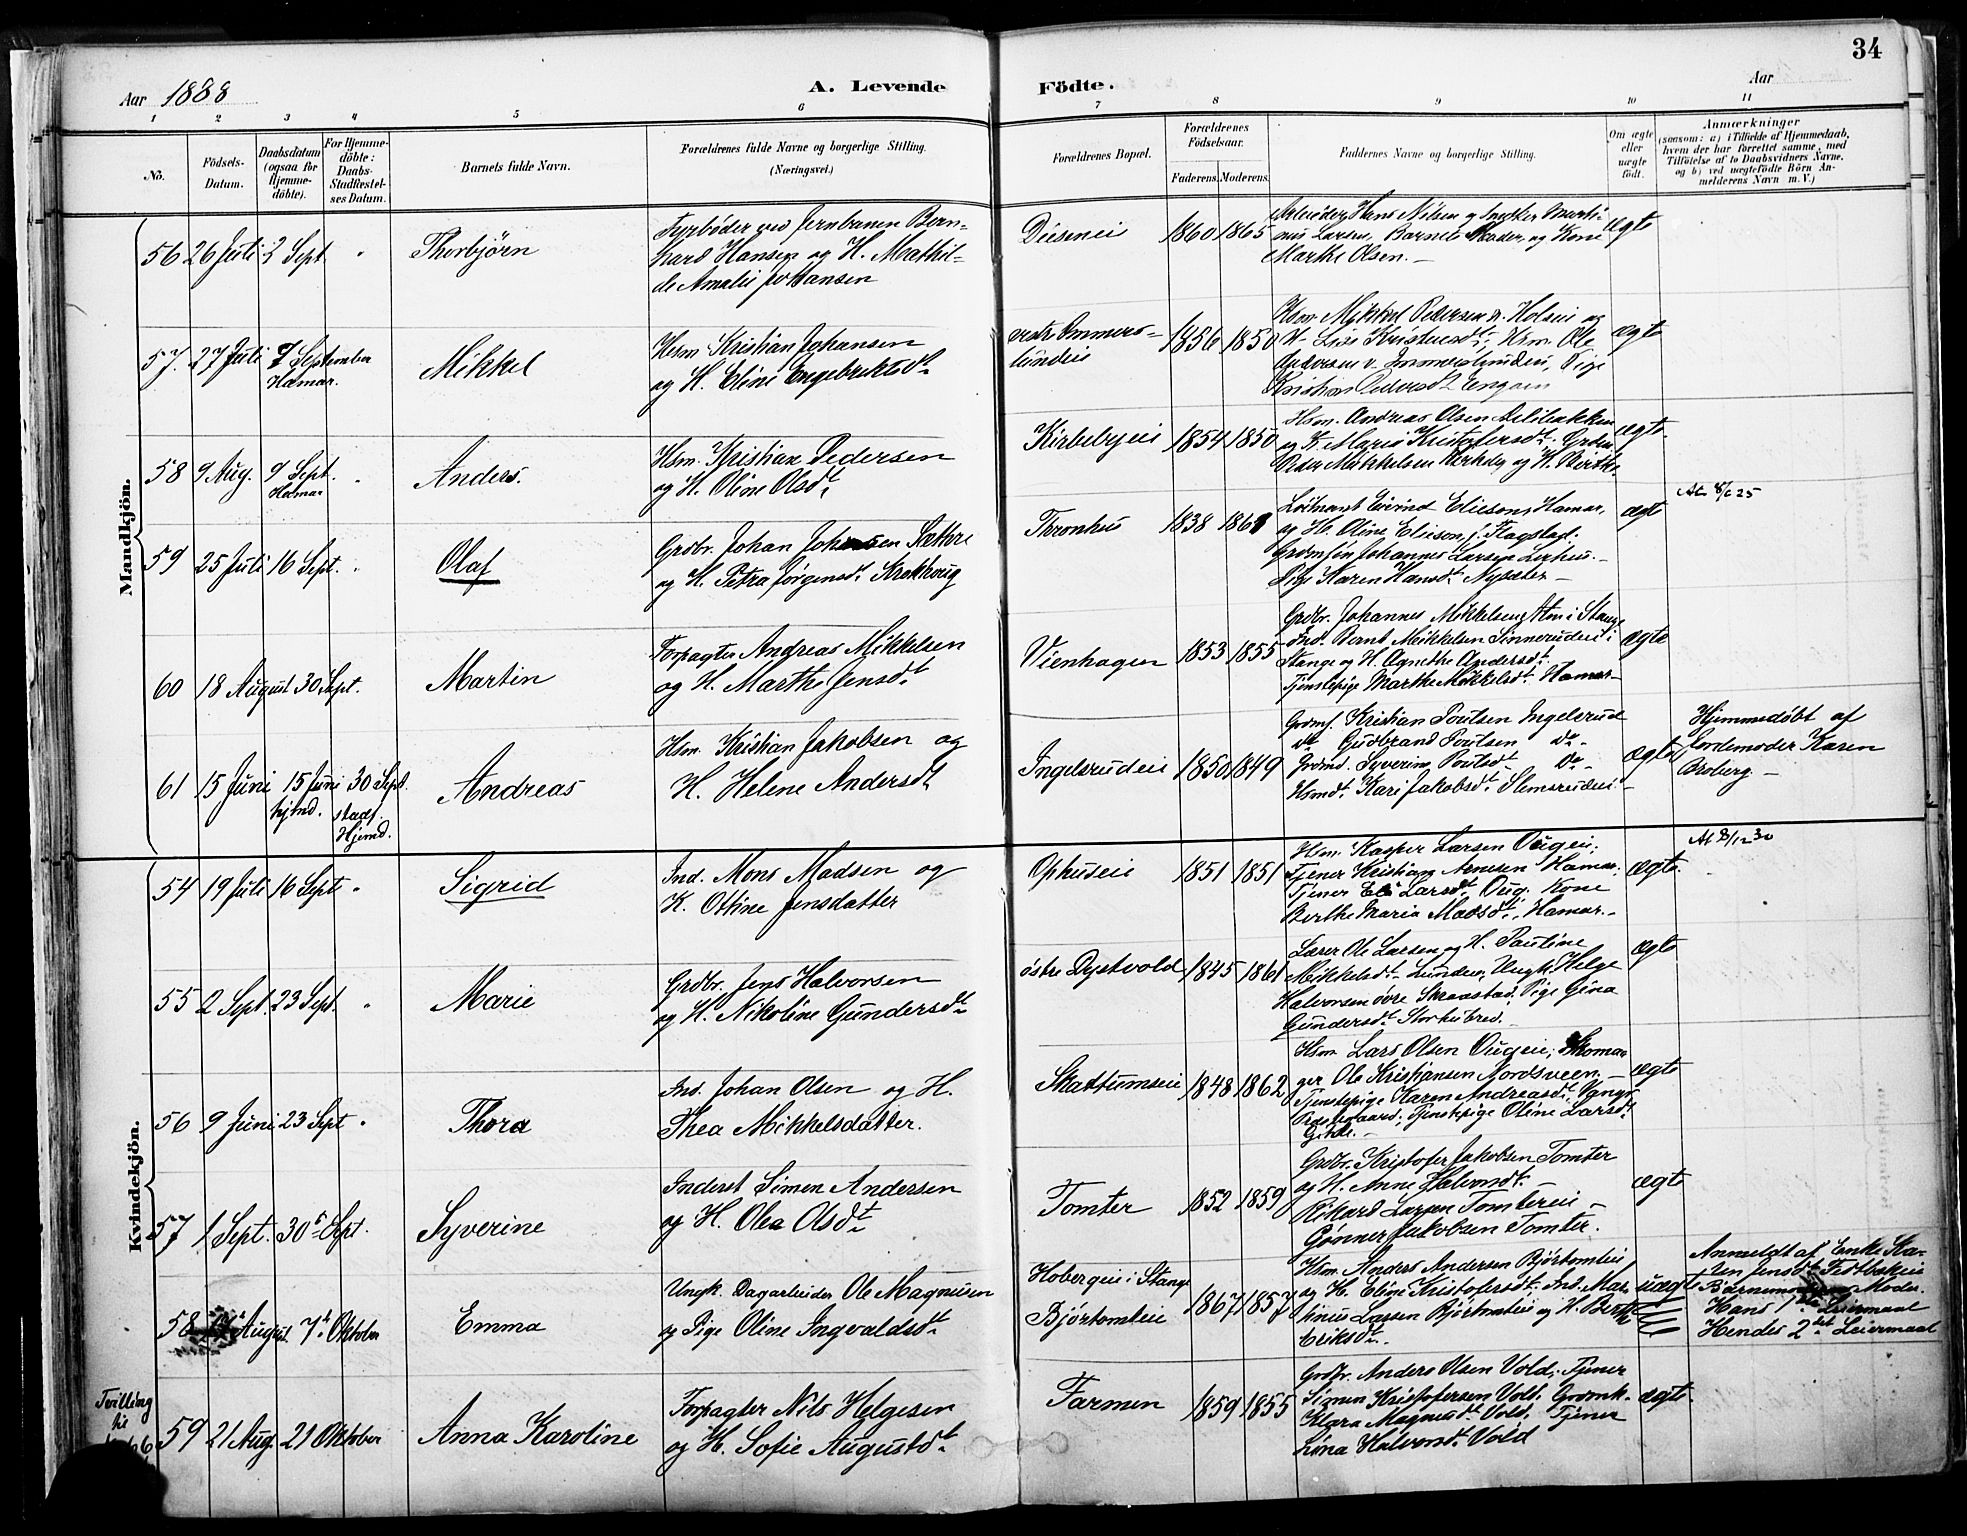 34
Aar 1888
A. Levende
Födte.
Aar
1 2 3 4 5 6 7 8 9 10 11
No.
Födsels-
Datum.
Daabsdatum
(ogsaa for
Hjemme-
döbte).
For Hjemme-
döbte:
Daabs-
Stadfæstel-
ses Datum.
Barnets fulde Navn.
Forældrenes fulde Navne og borgerlige Stilling.
(Næringsvei.)
Forældrenes Bopæl.
Forældrenes
Födselsaar.
Faderens. Moderens.
Faddernes Navne og borgerlige Stilling.
Om ægte
eller
uægte
födt.
Anmærkninger
(saasom: a) i Tilfælde af Hjemmedaab,
hvem der har forrettet samme, med
Tilföielse af to Daabsvidners Navne,
og b) ved uægtefödte Börn An-
melderens Navn m. V.)
Mandkjön.
56 26 Juli 2 Sept " Thorbjörn
Fyrbøder ved Jernbanen Bern-
hard Hansen og H. Mathil-
de Amalie Johansen
1860 1865
Hans Nilsen og Snedker Marti-
nus Larsen, Barnets Moder, og Kone
Marthe Olsen.
ægte
57. 27 Juli 7 September
Hamar.
Mikkel
Hsm. Kristian Johansen
og H. Eline Engebrektsdt
vestre Ommers-
lundeie
1856 1850
Hsm. Mikkel Pedersen
Hsm. Ole
Andersen v. Pige
ægte
58 9 Aug. 9 Sept.
Hamar
" Anders.
Hsm. Kristian Pedersen
og H. Oline Olsdt
Kirkebyeie 1854 1850
Hsm. Andreas Olsen
og K. Marie Kristofersdt. Grdbr.
Peder Mikkelsen Kirkeby og H. Berthe
ægte.
59 25 Juli 16 Sept. " Olaf
Grdbr. Johan Johansen Sæthre
og H. Petra Jørgensdt. Krokhoug
Thronhus 1838 1861
Løitnant Eivind Elieson, Hamar,
og H. Oline Elieson f. Flagstad.
Grdmsøn Johannes Larsen
Pige Karen Hansdt. Nysæter
ægte
60 18 August 30 Sept. Martin
Forpagter Andreas Mikkelsen
og H. Marthe Jensdt
Vienhagen 1853 1855
Grdbr. Johannes Mikkelsen i Stange
Ind. Bernt Mikkelsen Sinnerudeie i
Stange og H. Agnethe Andersdt.
Tjenstepige Marthe Mikkelsdt. Hamar
ægte
61 15 Juni 15 Juni
hjmd.
30 Sept.
stadf.
Hjemd.
Andreas
Hsm. Kristian Jakobsen og
H. Helene Andersdt
Ingelsrudeie 1850 1849
Kristian Poulsen Ingelsrud
do Gudbrand Poulsen do
Syverine Poulsdt do
Kari Jakobsdt. Slemsrudeie
ægte
Hjemmedøbt af
Jordemoder Karen
Broberg.
Kvindekjön.
54 19 Juli 16 Sept " Sigrid
Ind. Mons Madsen og
K. Otline Jensdatter
Ophuseie 1851 1851
Hsm. Kasper Larsen Ougeie,
Tjener Kristian Arnesen Hamar,
Tjener Larsdt. Oug. Kone
Berthe Maria Madsdt. Hamar.
ægte.
55 2 Sept. 23 Sept. " Marie
Grdbr. Jens Halvorsen
og H. Nikoline Gundersdt
østre Dystvold 1845 1861
Lærer Ole Larsen og H. Pauline
Mikkelsdt. Lunden, Ungk. Helge
Halvorsen øvre Skraastad, Pige Gina
Gundersdt. Storhubred.
ægte
56 9 Juni 23 Sept " Thora
Ind. Johan Olsen og H.
Thea Mikkelsdatter.
Skattumseie 1848 1862
Hsm. Lars Olsen Ougeie, Skoma-
ger Ole Kristiansen Nordsveen.
Tjenstepige Karen Andreasdt. Vangs
Præstegaard, Tjenstepige Oline Larsdt.
ægte
57 1 Sept. 30 Sept. Syverine
Inderst Simen Andersen
og H. Olea Olsdt
Tomter 1852 1859
Grdbr. Kristofer Jakobsen Tomter
og H. Anne Halvorsdt.
Rikard Larsen Tomtereie
Gunner Jakobsen Tomter.
ægte
58 August 7de Oktober Emma
Ungk. Dagarbeider Ole Magnusen
og Pige Oline Ingvaldsdt
Hobergeie i Stange
Bjørtomteie
1867 1857
Hsm. Anders Andersen Bjørtomteie
og H. Eline Kristofersdt. Ind. Mar-
tinus Larsen Bjørtomteie og H. Berthe
Eriksdt.
uægte
Anmeldt af Enke Ka-
ren Jensdt.
Hans 1ste Leiermaal
Hendes 2det Leiermaal
Tvilling
59 21 Aug. 21 Oktober Anna Karoline
Forpagter Nils Helgesen
og H. Sofie Augustdt
Farmen 1859 1855
Grdbr. Anders Olsen Vold, Tjener
Simen Kristofersen Vold. Grdmk.
Klara Magnusdt. Vold. Tjener
Lina Halvorsdt. Vold
ægte.